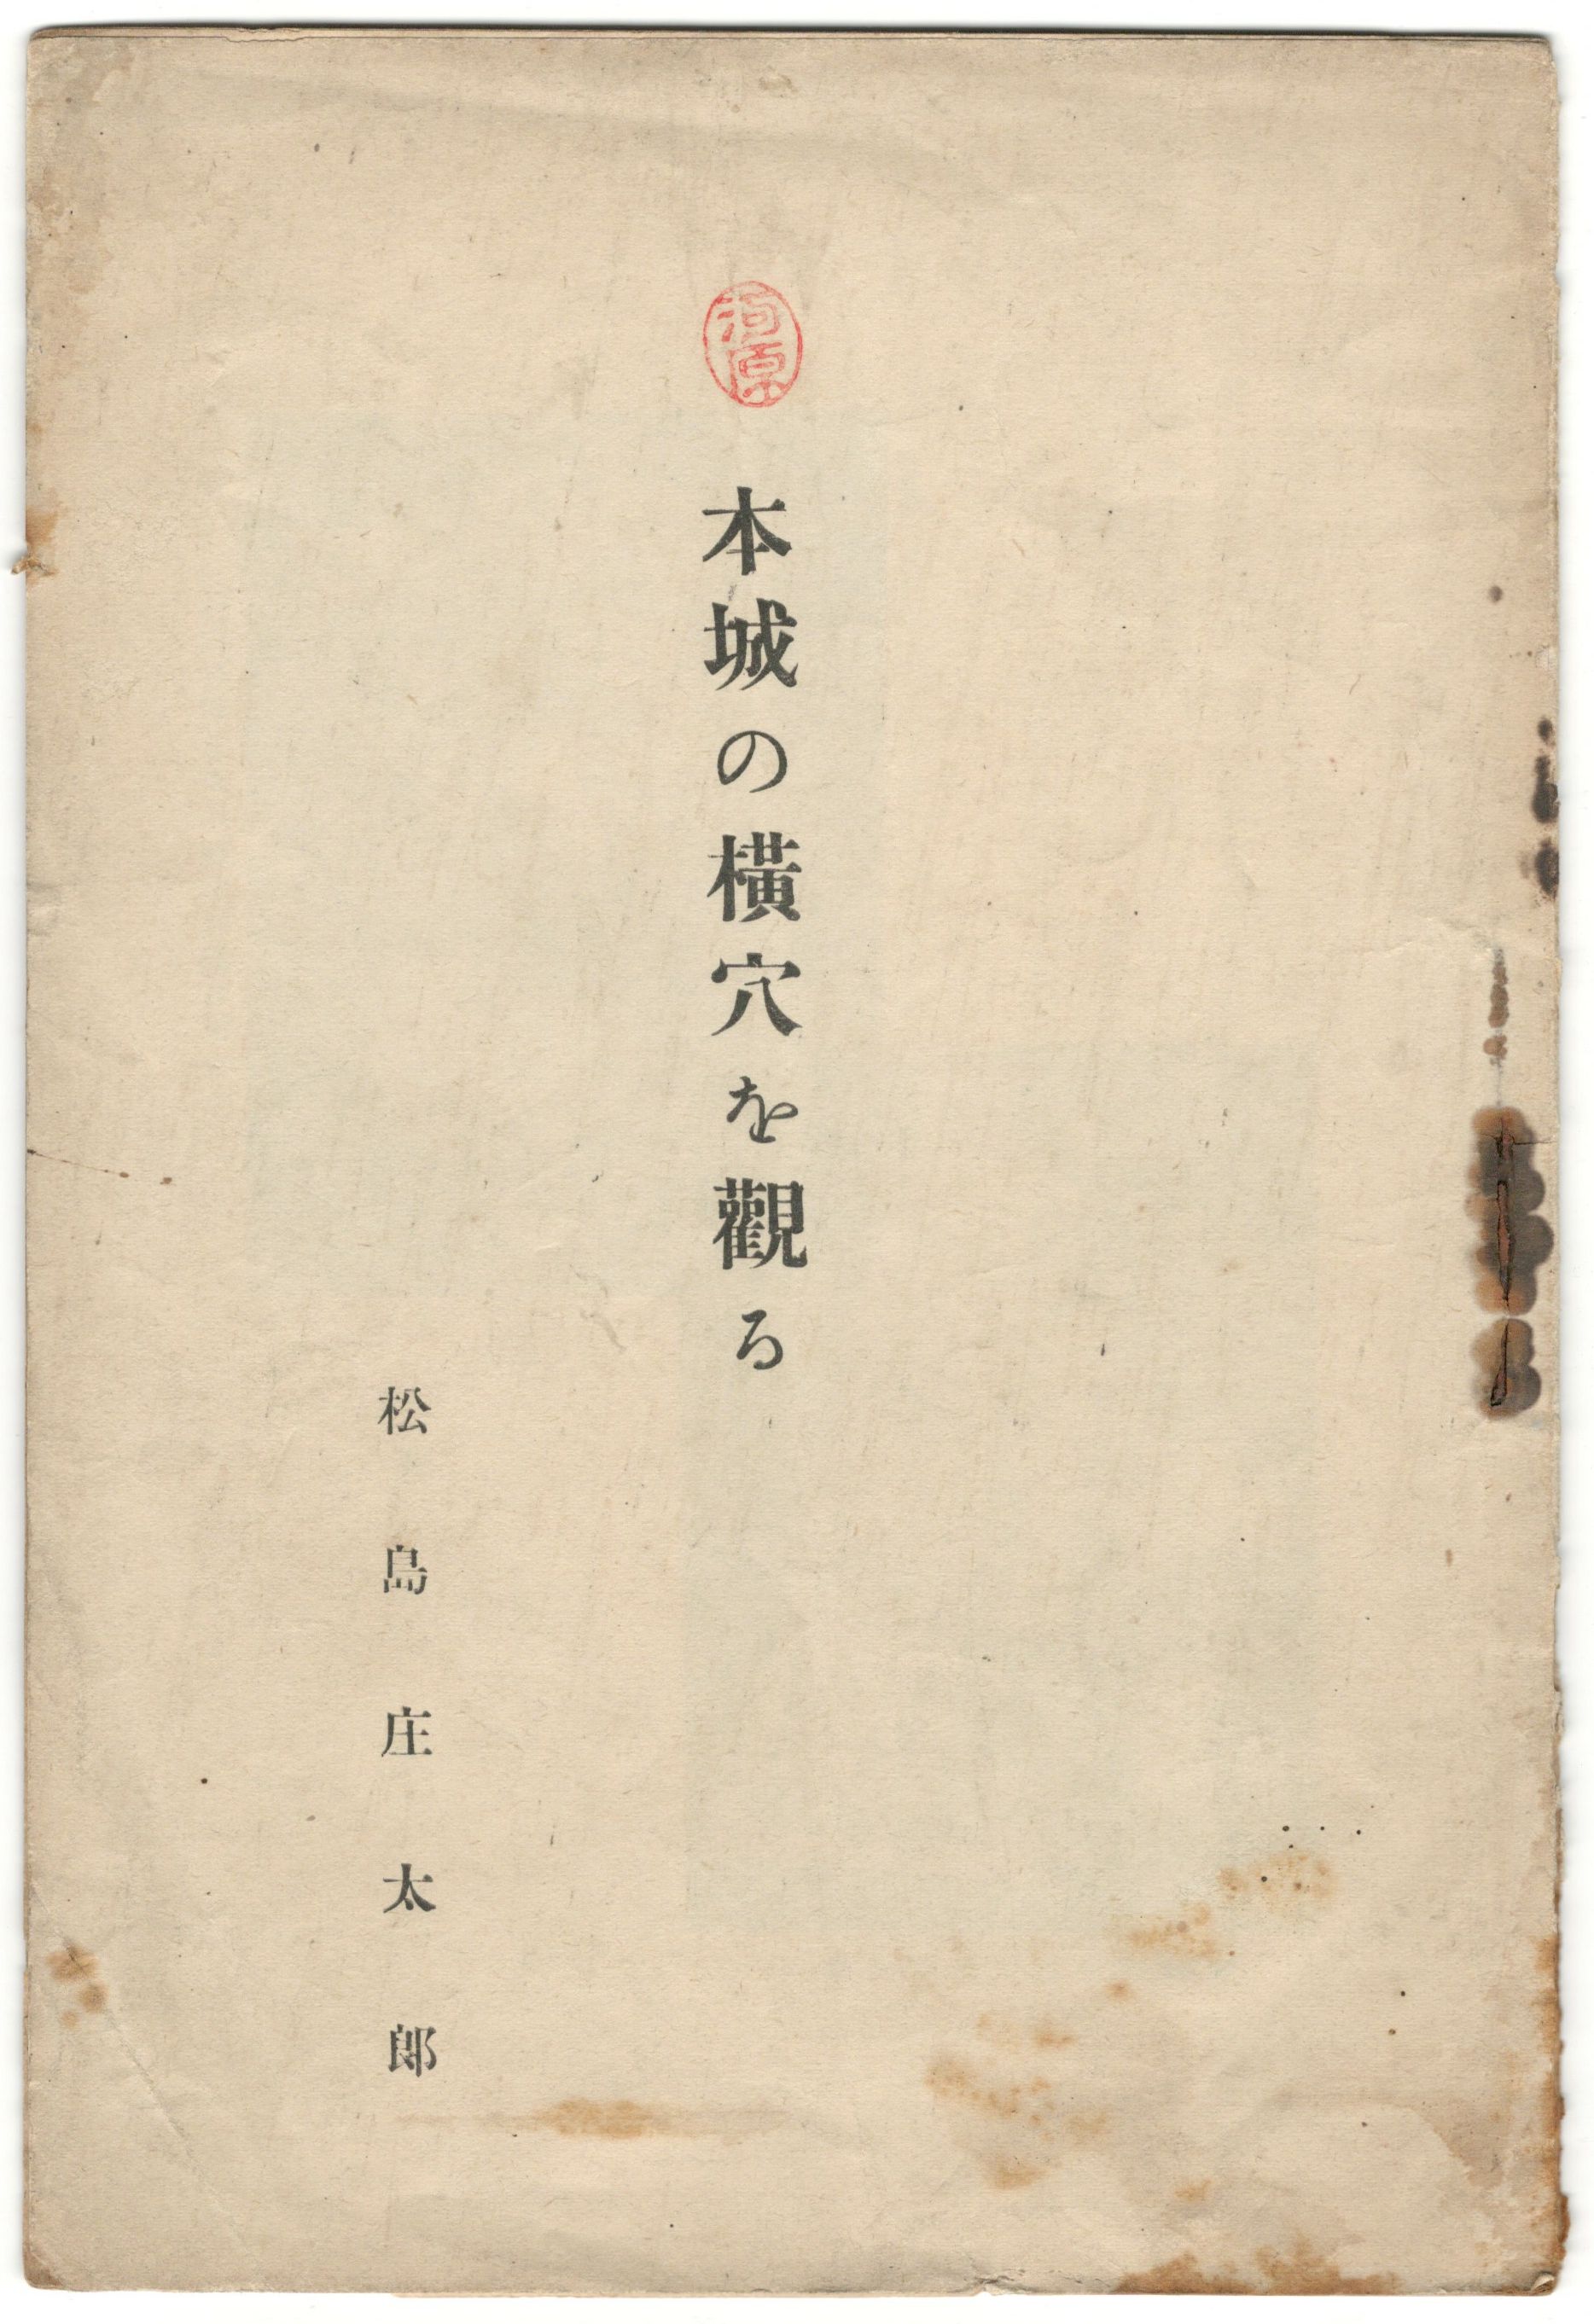 河原
本城の橫穴を觀る
松島庄太郎